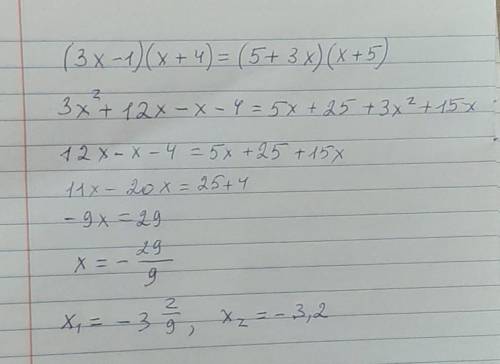 (3x-1)(x+4)=(5+3x)(x+5)
3x²+12x-x-4=5x+25+3x²+15x
12x-x-4=5x+25+15x
11x-20x=25+4
-9x=29
x=-29/9
x₁=-3 2/9, x₂=-3,2